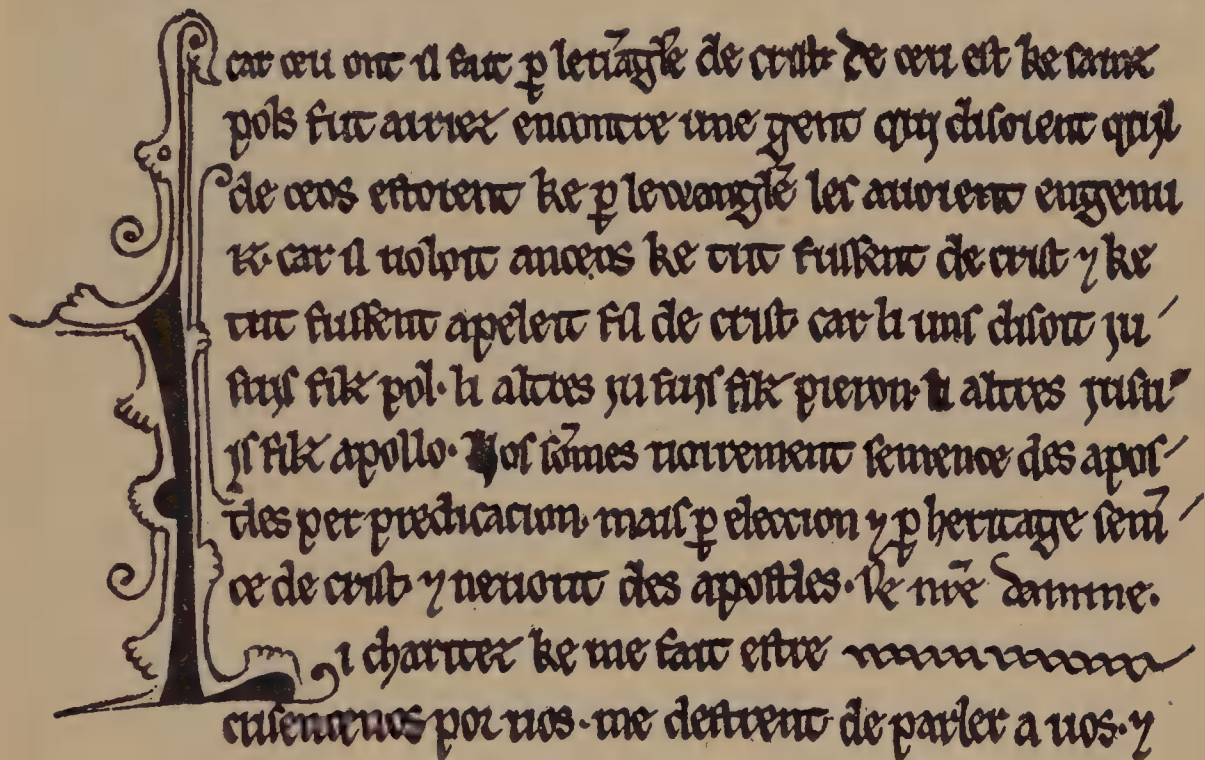 car ceu ont il fait ꝑ lewāgl̄e de crist· De ceu est ke sainz
pols fut airiez encontre une gent quj disoient qujl
de ceos estoient ke ꝑ lewangl̄e les auoient engenui
z· car il uoloit anceos ke tuit fussent de crist ⁊ ke
tuit fussent apeleit fil de crist· car li uns disoit ju
sujs filz pol· li altres ju sujs filz pieron· li altres jusu
js filz apollo· Nos sōmes uoirement semence des apos
tles per predicacion· mais ꝑ eleccion ⁊ ꝑ heritage sem̄
ce de crist· ⁊ des apostles· De nr̄e damme.
Li charitez ke me fait estre
cusencenos por uos· me destrent de parler a uos· ⁊